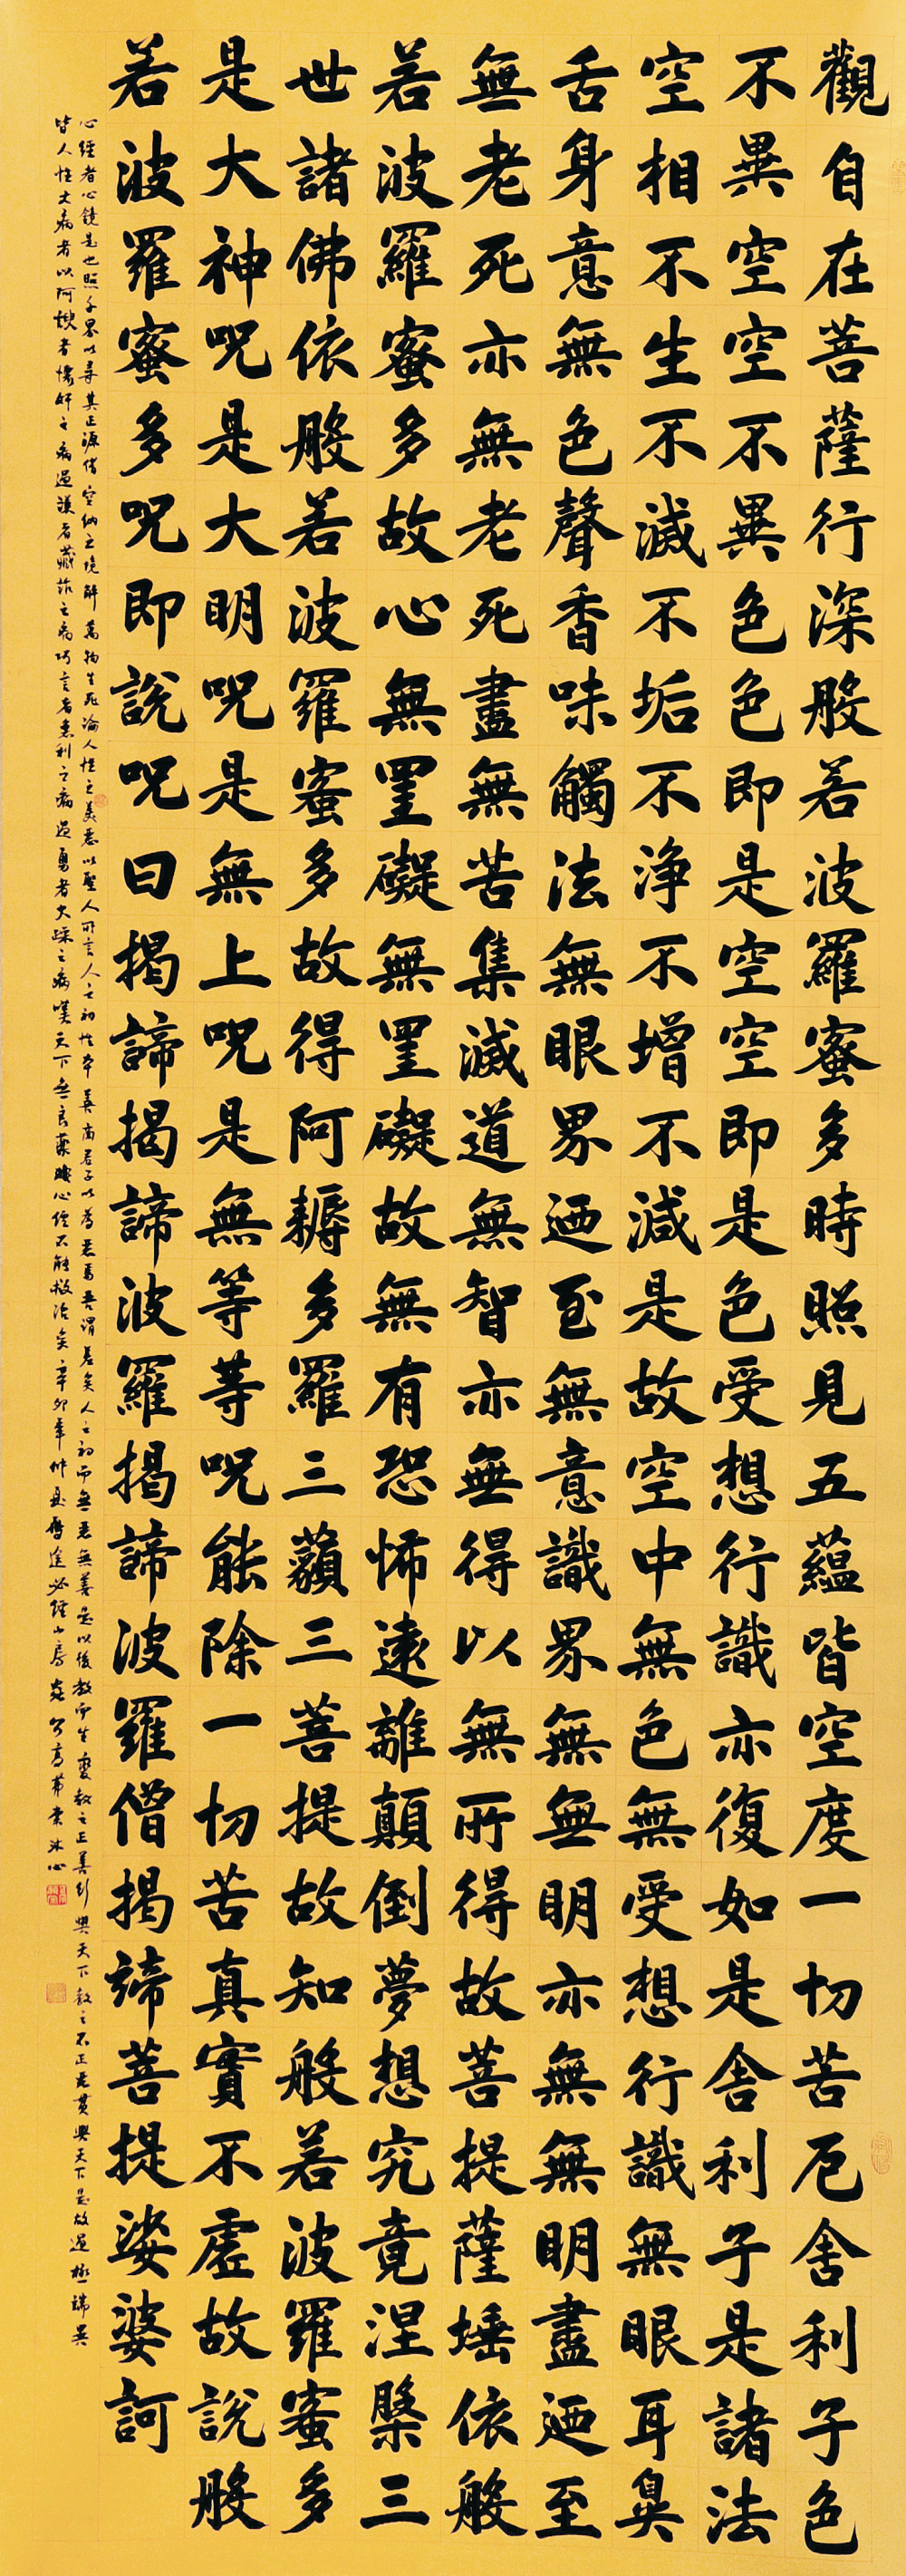 觀自在菩薩行深般若波羅蜜多時照見五蘊皆空度一切苦厄舍利子色
不異空空不異色色即是空空即是色受想行識亦復如是舍利子是諸法
空相不生不滅不垢不淨不增不減是故空中無色無受想行識無眼耳鼻
舌身意無色聲香味觸法無眼界迺至無意識界無無明亦無無明盡迺至
無老死亦無老死盡無苦集滅道無智亦無得以無所得故菩提薩埵依般
若波羅蜜多故心無罣礙無罣礙故無有恐怖遠離顛倒夢想究竟涅槃三
世諸佛依般若波羅蜜多故得阿耨多羅三藐三菩提故知般若波羅蜜多
是大神呪是大明呪是無上呪是無等等呪能除一切苦真實不虛故說般
若波羅蜜多呪即說呪曰揭諦揭諦波羅揭諦波羅僧揭諦菩提娑婆訶
心經者心鏡是也照千界以尋其正源借空納之境解萬物生死論人性之美惡以聖人所言人之初性本善商君子以為惡焉吾謂差矣人之初而無惡無善是以後教而生變教之正善行與天下教之不正惡貫與天下是故過極端異
皆人性大病者以阿諛者懷奸之病過謙者藏詐之病巧言者意利之病過勇者大躁之病嘆天下無良藥唯心經不能救治矣辛卯年仲夏